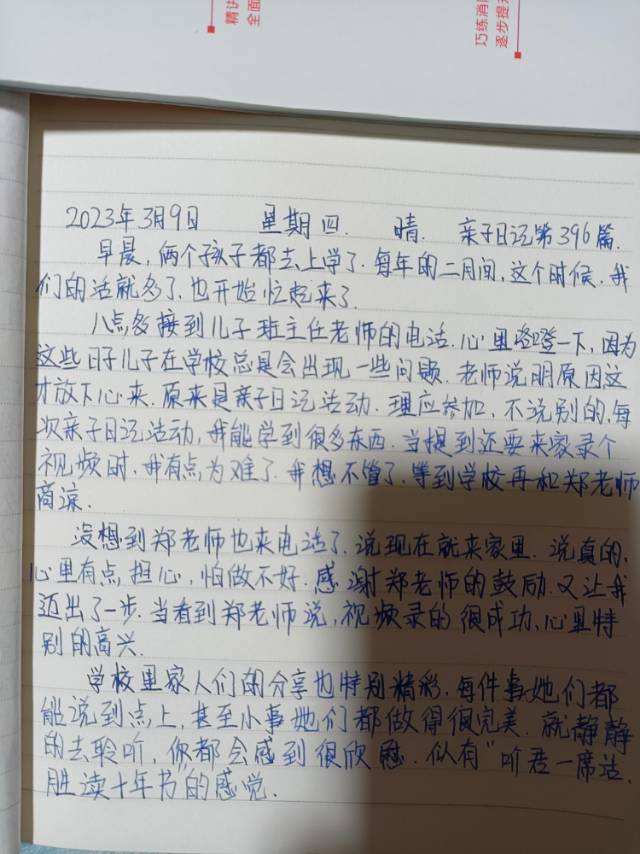 精讲
全面
巧练消
逐步提升
2023年3月9日 星期四 晴. 亲子日记第396篇.
早晨,俩个孩子都去上学了.每年的二月间,这个时候.我
们的活就多了.也开始忙起来了.
八点多接到儿子班主任老师的电话.心里咯噔一下,因为
这些日子儿子在学校总是会出现一些问题.老师说明原因这
才放下心来.原来是亲子日记活动.理应参加,不说别的,每
次亲子日记活动,我能学到很多东西.当提到还要来家录个
视频时.我有点为难了.我想不管了.等到学校再和郑老师
商谅.
没想到郑老师也来电话了.说现在就来家里.说真的,
心里有点担心,怕做不好.感谢郑老师的鼓励.又让我
迈出了一步.当看到郑老师说,视频录的很成功.心里特
别的高兴.
学校里家人们的分享也特别精彩.每件事她们都
能说到点上.甚至小事她们都做得很完美.就静静
的去聆听,你都会感到很欣慰.似有"听君一席话,
胜读十年书"的感觉.